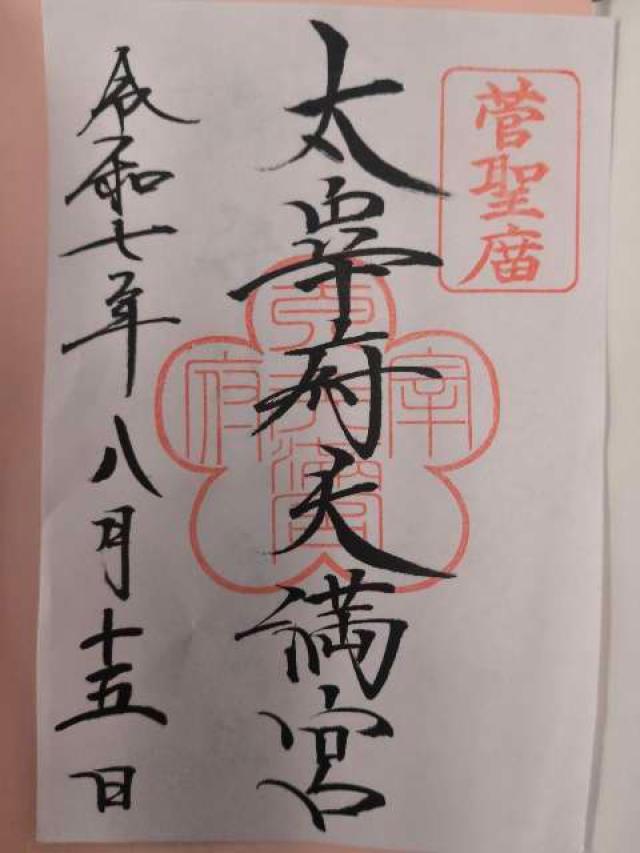 菅聖廟
太宰府天満宮
令和七年八月十五日